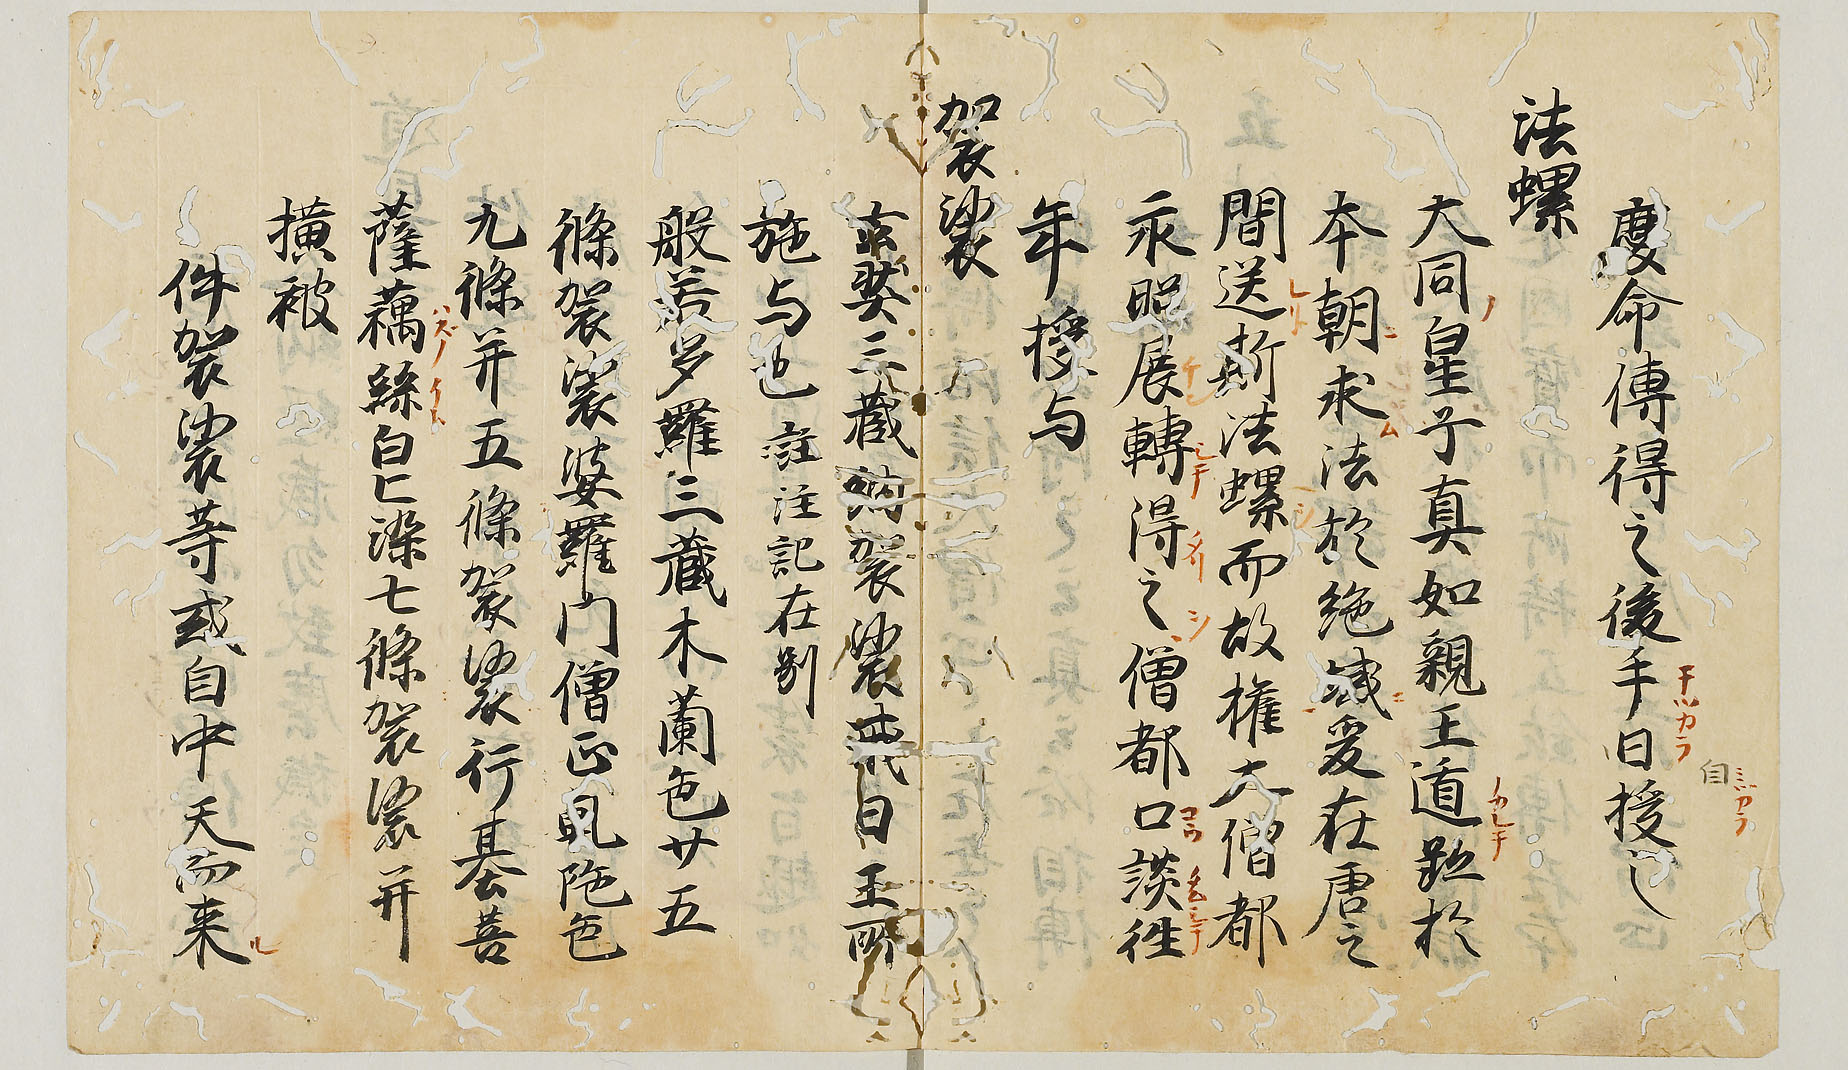 慶命傳得之後手日授之
法螺
大同皇子真如親王遁跡於
本朝求法於絶域爰在唐之
間送斯法螺而故権大僧都
永照展轉得之僧都口談往
年授与
袈裟
玄奘三蔵納袈裟戒日王所
施与也 註注記在別
般若多羅三蔵木蘭色廿五
條袈裟婆羅門僧正毘陁色
九條并五條袈裟行基菩
薩藕絲白㲲染七條袈裟并
横被
件袈裟等或自中天而来